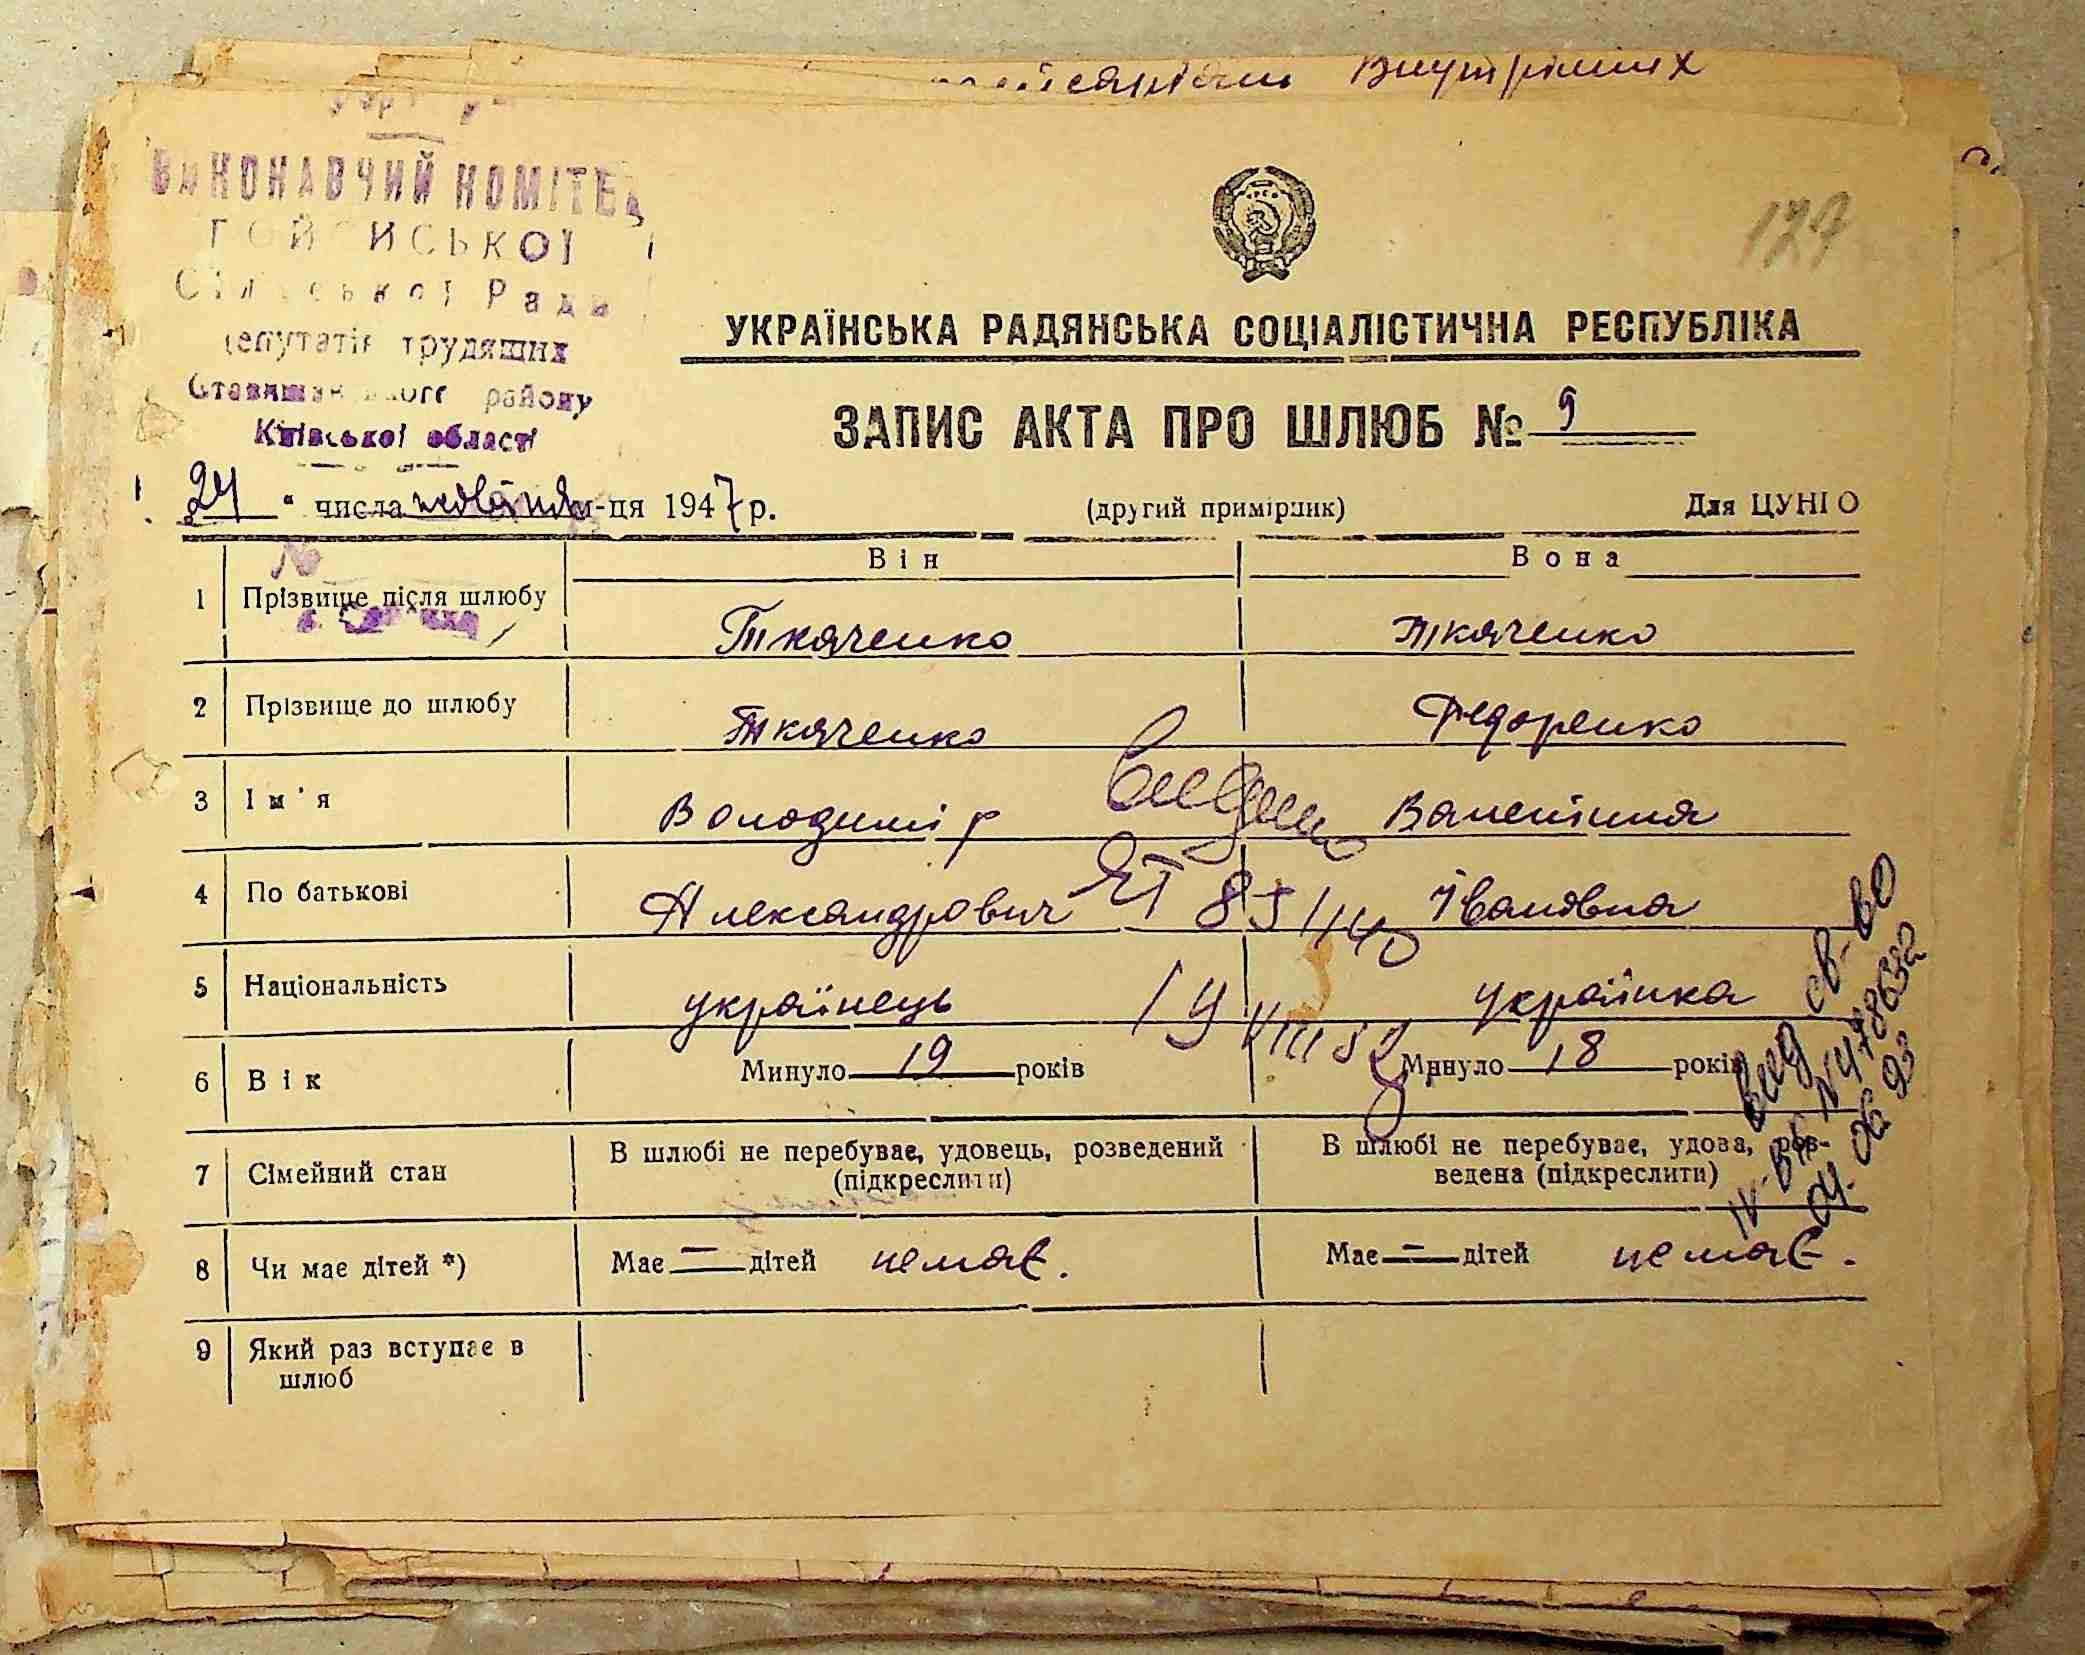 Внутрішніх
127
ВИКОНАВЧИЙ КОМІТЕ
Сільської Ради
депутатів трудящих
району
Київської області
УКРАЇНСЬКА РАДЯНСЬКА СОЦІАЛІСТИЧНА РЕСПУБЛІКА
ЗАПИС АКТА ПРО ШЛЮБ № 9
24 “ числа м-ця 1947 р. (другий примірник) Для ЦУНГО
Він Вона
№
1 Прізвище після шлюбу Ткяченко Ткяченко
2 Прізвище до шлюбу Ткяченко Федоренко
3 Ім'я Володимір Валентина
4 По батькові Александрович Івановна
ЯТ 851140
5 Національність українець українка
19 VIII 52
6 Вік Минуло 19 років Минуло 18 років
7 Сімейний стан В шлюбі не перебуває, удовець, розведений (підкреслити) В шлюбі не перебуває, удова, роз-
ведена (підкреслити)
8 Чи має дітей *) Має — дітей немає. Має — дітей немає.
9 Який раз вступає в
шлюб
вид св-во
IV-БК N478632
04.06 93